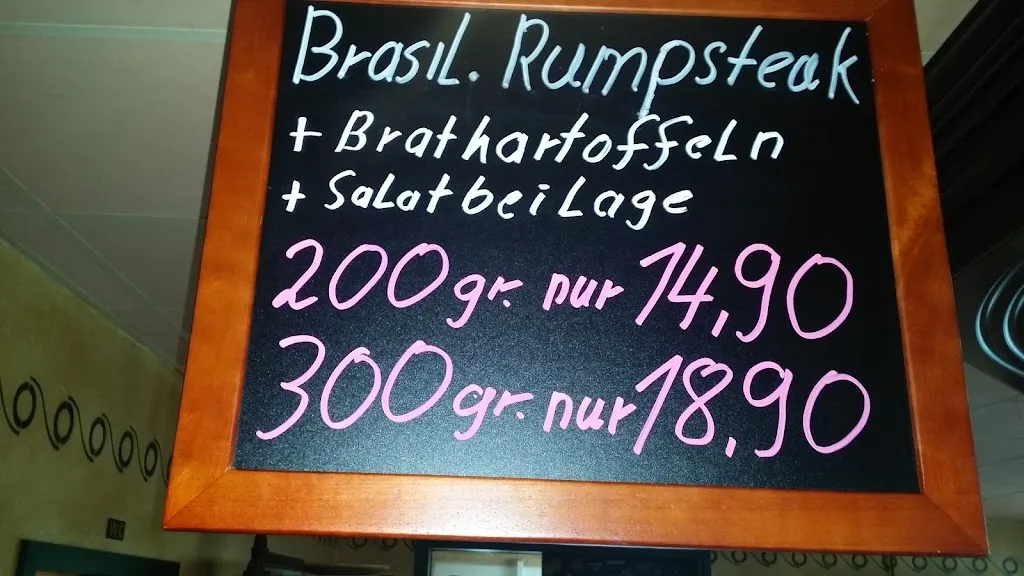 Brasil. Rumpsteak
+ Brathartoffeln
+ Salatbeilage
200gr. nur 14,90
300gr. nur 18,90
WC